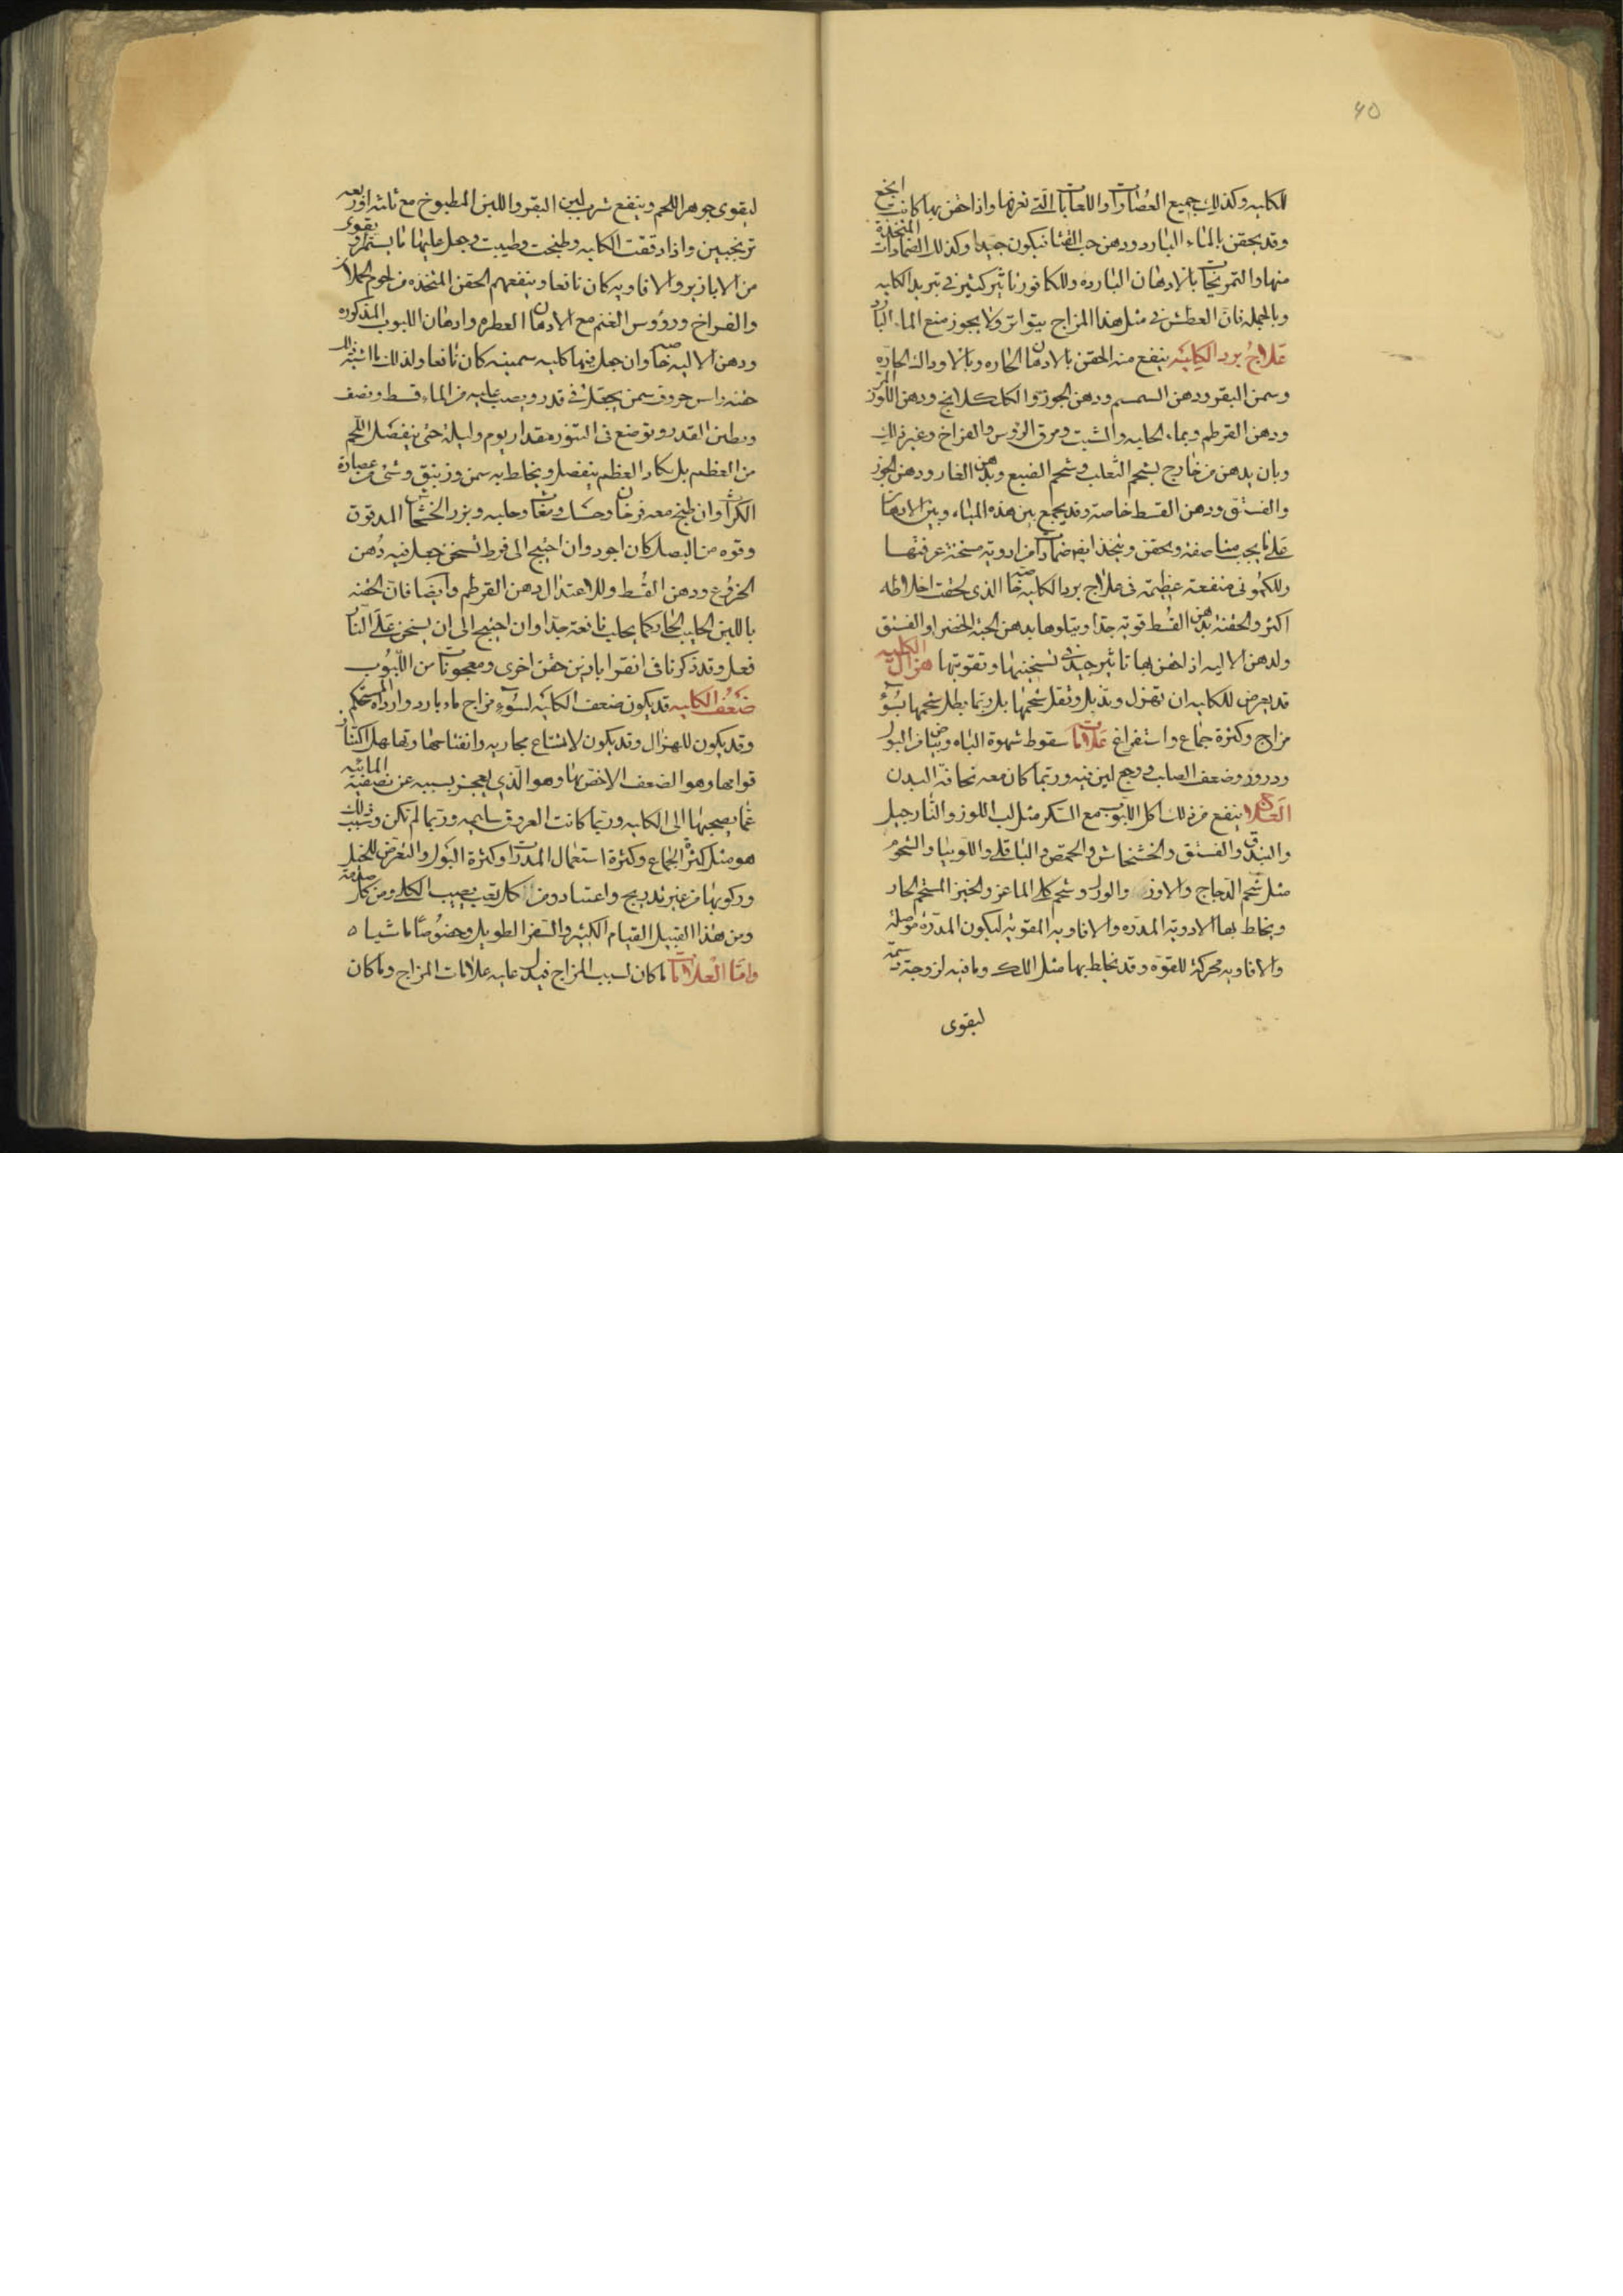 ٤٥
للكليه وكذلك جميع العصارات واللعابات التي تعرفها واذا حقن بها كانت انجع
وقد يحقن بالماء البارد ودهن حب القثا فيكون جيدا وكذلك الضمادات المتخذة
منها والتمريخات بالادهان البارده وللكافور تاثير كثير في تبريد الكليه
وبالجمله فان العطش في مثل هذا المزاج يتواتر ولا يجوز منع الماء البارد
علاج برد الكليه ينفع منه الحقن بالادهان الحاره وبالاوداك الحاره
وسمن البقر ودهن السمسم ودهن الجوز والكلكلانج ودهن اللوز المر
ودهن القرطم وبماء الحلبه والشبت ومرق الرؤس والفراخ وغير ذلك
وبان يدهن من خارج بشحم الثعلب وشحم الضبع وبدهن الغار ودهن الجوز
والفستق ودهن القسط خاصة وقد يجمع بين هذه المياه وبين الادهان
على ما يجب مناصفة ويحقن ويتخذ ايضا ضمادات من ادوية مسخنة عرفتها
وللكموني منفعة عظيمة في علاج برد الكليه خاصة الذي لحقت اخلاطه
اكثر والحقنة بدهن القسط قوية جدا ويتلوها بدهن الحبة الخضرا والفستق
ولدهن الاليه اذا حقن بها تاثير جيد في تسخينها وتقويتها هزال الكليه
قد يعرض للكليه ان تهزل وتذبل ويقل شحمها بل ربما بطل شحمها بسوء
مزاج وكثرة جماع واستفراغ علامات سقوط شهوة الباه وبياض البول
ودروره وضعف الصلب ووجع لين فيه وربما كان معه نحافة البدن
العلاج ينفع من ذلك اكل اللبوب مع السكر مثل لب اللوز والنارجيل
والبندق والفستق والخشخاش والحمص والباقلى واللوبيا والشحوم
مثل شحم الدجاج والاوز والورل وشحم كلى الماعز والخبز المشحم الحار
ويخلط بها الادوية المدره والافاويه المقوية ليكون المدرة موصلة
والافاويه محركة للقوه وقد يخلط بها مثل اللك وما فيه لزوجة دسمة
ليقوى
ليقوى جوهر اللحم وينفع شرب لبن البقر واللبن المطبوخ مع ثلثه او ربعه
ترنجبين واذا دققت الكليه وطبخت وطيبت وجعل عليها ما يستمرى ويقوى
من الابازير والافاويه كان نافعا وينفعهم الحقن المتخذه من لحوم الحملان
والفراخ ورؤوس الغنم مع الادهان العطره وادهان اللبوب المذكوره
ودهن الاليه خاصة وان جعل فيها كليه سمينه كان نافعا ولذلك ما اشبه ذلك
حقنه راس خروف سمين يجعل في قدر ويصب عليه من الماء قسط ونصف
ويطين القدر ويوضع في التنور مقدار يوم وليلة حتى ينفصل اللحم
من العظم بل يكاد العظم ينفصل ويخلط به سمن وزنبق وشئ من عصارة
الكراث وان طبخ معه فرخان وحسك ومغاث وحلبه وبزر الخشخاش المدقوق
وقوه من البصل كان اجود وان احتيج الى فرط تسخن جعل فيه دهن
الخروع ودهن القسط وللاعتدال دهن القرطم وايضا فان الحقنه
باللبن الحليب الحار كما يحلب نافعة جدا وان احتيج الى ان يسخن على النار
فعل وقد ذكرنا في القرابادين حقن اخرى ومعجونات من اللبوب
ضعف الكليه قد يكون ضعف الكليه لسوء مزاج ما وبارد واراداه المستحكم
وقد يكون للهزال وقد يكون لاتساع مجاريه وانفتاحها وتهلهل اكتناز
قوامها وهو الضعف الاخص بها وهو الذي يعجز بسببه عن تصفية المائيه
عما يصحبها الى الكليه وربما كانت العروق سليمه وربما لم تكن وسبب ذلك
هو مثل كثرة الجماع وكثرة استعمال المدرات وكثرة البول والتعرض للخيل
وركوبها من غير تدريج واعتياد ومن كل تعب يصيب الكلى ومن كل صدمة
ومن هذا القبيل القيام الكثير والسفر الطويل وخصوصا ماشيا ه
واما العلامات ما كان لسبب المزاج فيدل عليه علامات المزاج وما كان